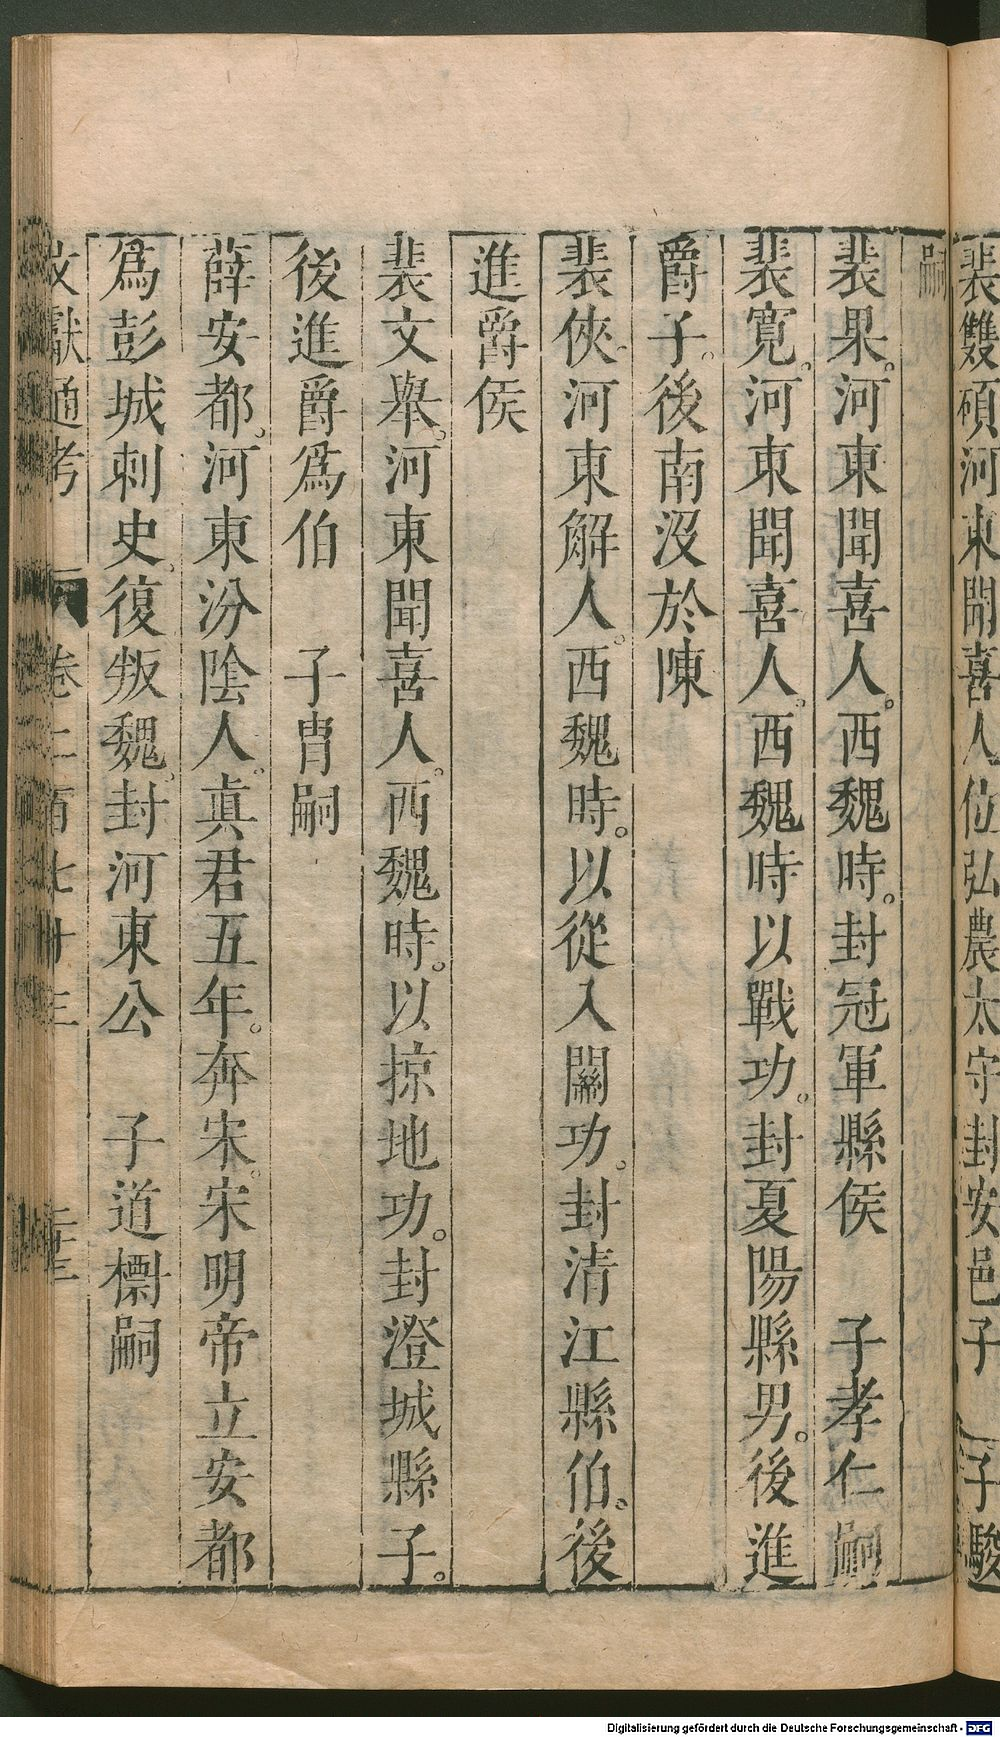 裴雙碩河東聞喜人位弘農太守封安邑子　子駿
嗣
裴果。河東聞喜人。西魏時。封冠軍縣侯　子孝仁嗣
裴寬。河東聞喜人。西魏時以戰功。封夏陽縣男。後進
爵子。後南沒於陳
裴俠。河東解人。西魏時。以從入關功。封清江縣伯。後
進爵侯
裴文舉。河東聞喜人。西魏時。以掠地功。封澄城縣子。
後進爵爲伯　子胄嗣
薛安都。河東汾陰人。眞君五年。奔宋。宋明帝立安都
爲彭城刺史。復叛魏。封河東公　子道檦嗣
文獻通考　卷二百七十三　二十三
Digitalisierung gefördert durch die Deutsche Forschungsgemeinschaft - DFG